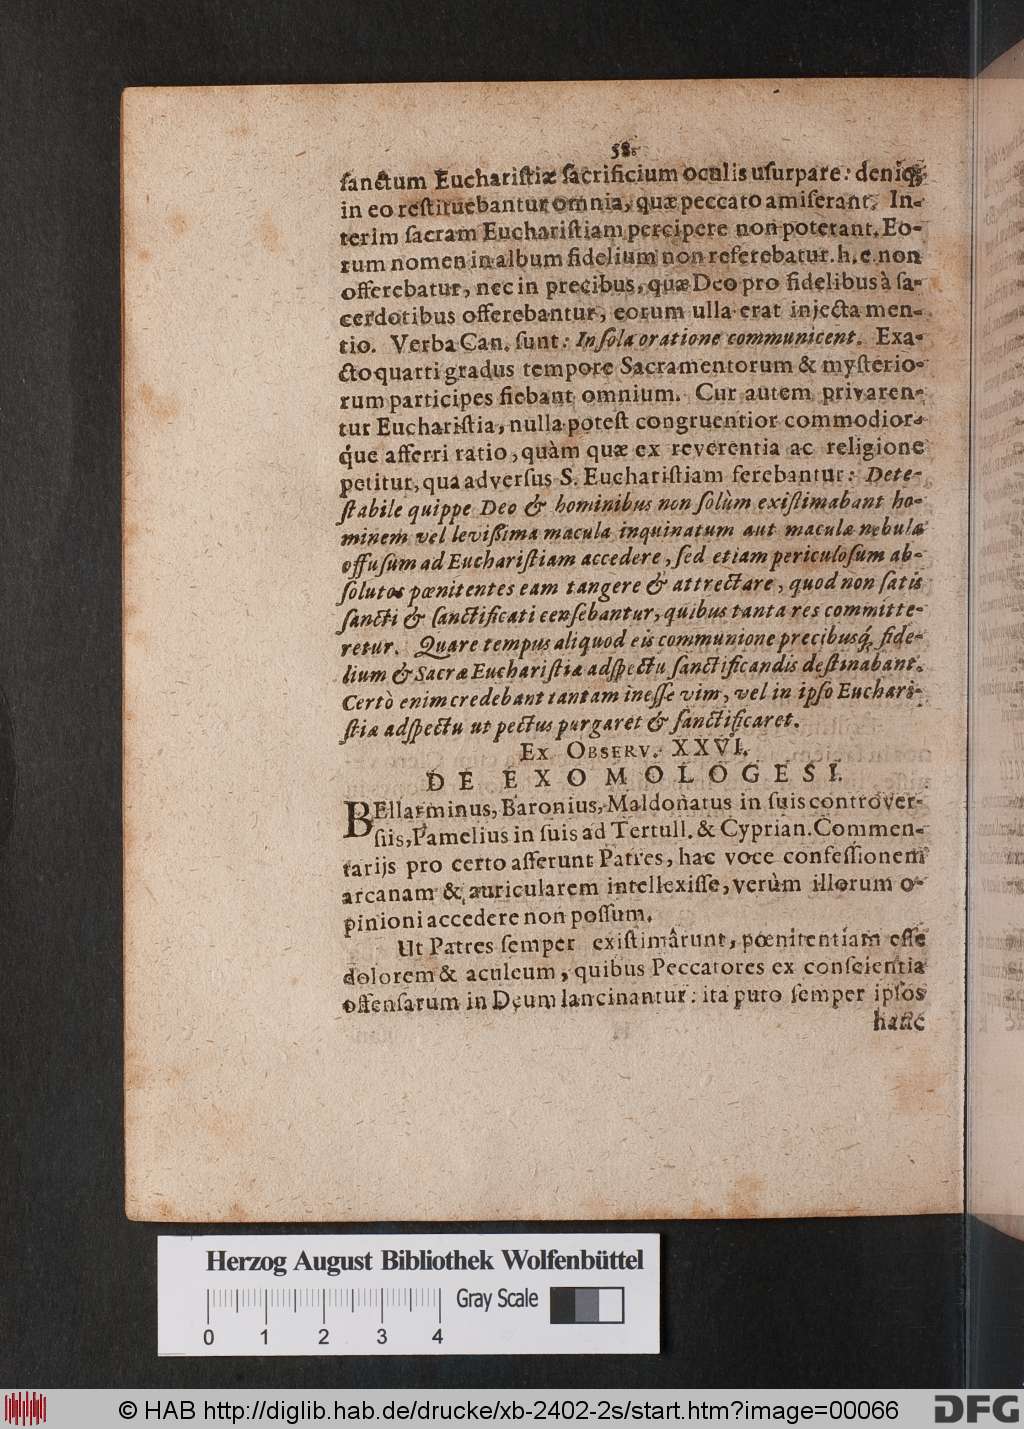 58.
sanctum Eucharistiæ sacrificium oculis usurpare: deniq;
in eo restituebantur omnia, quæ peccato amiserant. In-
terim sacram Eucharistiam percipere non poterant. Eo-
rum nomen in album fidelium non referebatur. h. e. non
offerebatur, nec in precibus, quæ Deo pro fidelibus à sa-
cerdotibus offerebantur, eorum ulla erat injecta men-
tio. Verba Can. sunt: In sola oratione communicent. Exa-
cto quarti gradus tempore Sacramentorum & mysterio-
rum participes fiebant omnium. Cur autem privaren-
tur Eucharistia, nulla potest congruentior commodior-
q́ue afferri ratio, quàm quæ ex reverentia ac religione
petitur, qua adversus S. Eucharistiam ferebantur: Dete-
stabile quippe Deo & hominibus non solùm existimabant ho-
minem vel levissima macula inquinatum aut maculæ nebula
offusum ad Eucharistiam accedere, sed etiam periculosum ab-
solutos pœnitentes eam tangere & attrectare, quod non satis
sancti & sanctificati censebantur, quibus tanta res committe-
retur. Quare tempus aliquod eis communione precibusq́; fide-
lium & Sacræ Eucharistiæ adspectu sanctificandis destinabant.
Certò enim credebant tantam inesse vim, vel in ipso Euchari-
stiæ adspectu ut pectus purgaret & sanctificaret.
EX OBSERV. XXVI.
DE EXOMOLOGESI.
BEllarminus, Baronius, Maldonatus in suis controver-
siis, Pamelius in suis ad Tertull. & Cyprian. Commen-
tarijs pro certo afferunt Patres, hac voce confessionem
arcanam & auricularem intellexisse, verùm illorum o-
pinioni accedere non possum.
Ut Patres semper existimârunt, pœnitentiam esse
dolorem & aculeum, quibus Peccatores ex conscientia
offensarum in Deum lancinantur: ita puto semper ipsos
hanc
Herzog August Bibliothek Wolfenbüttel
0 1 2 3 4 Gray Scale
© HAB http://diglib.hab.de/drucke/xb-2402-2s/start.htm?image=00066 DFG